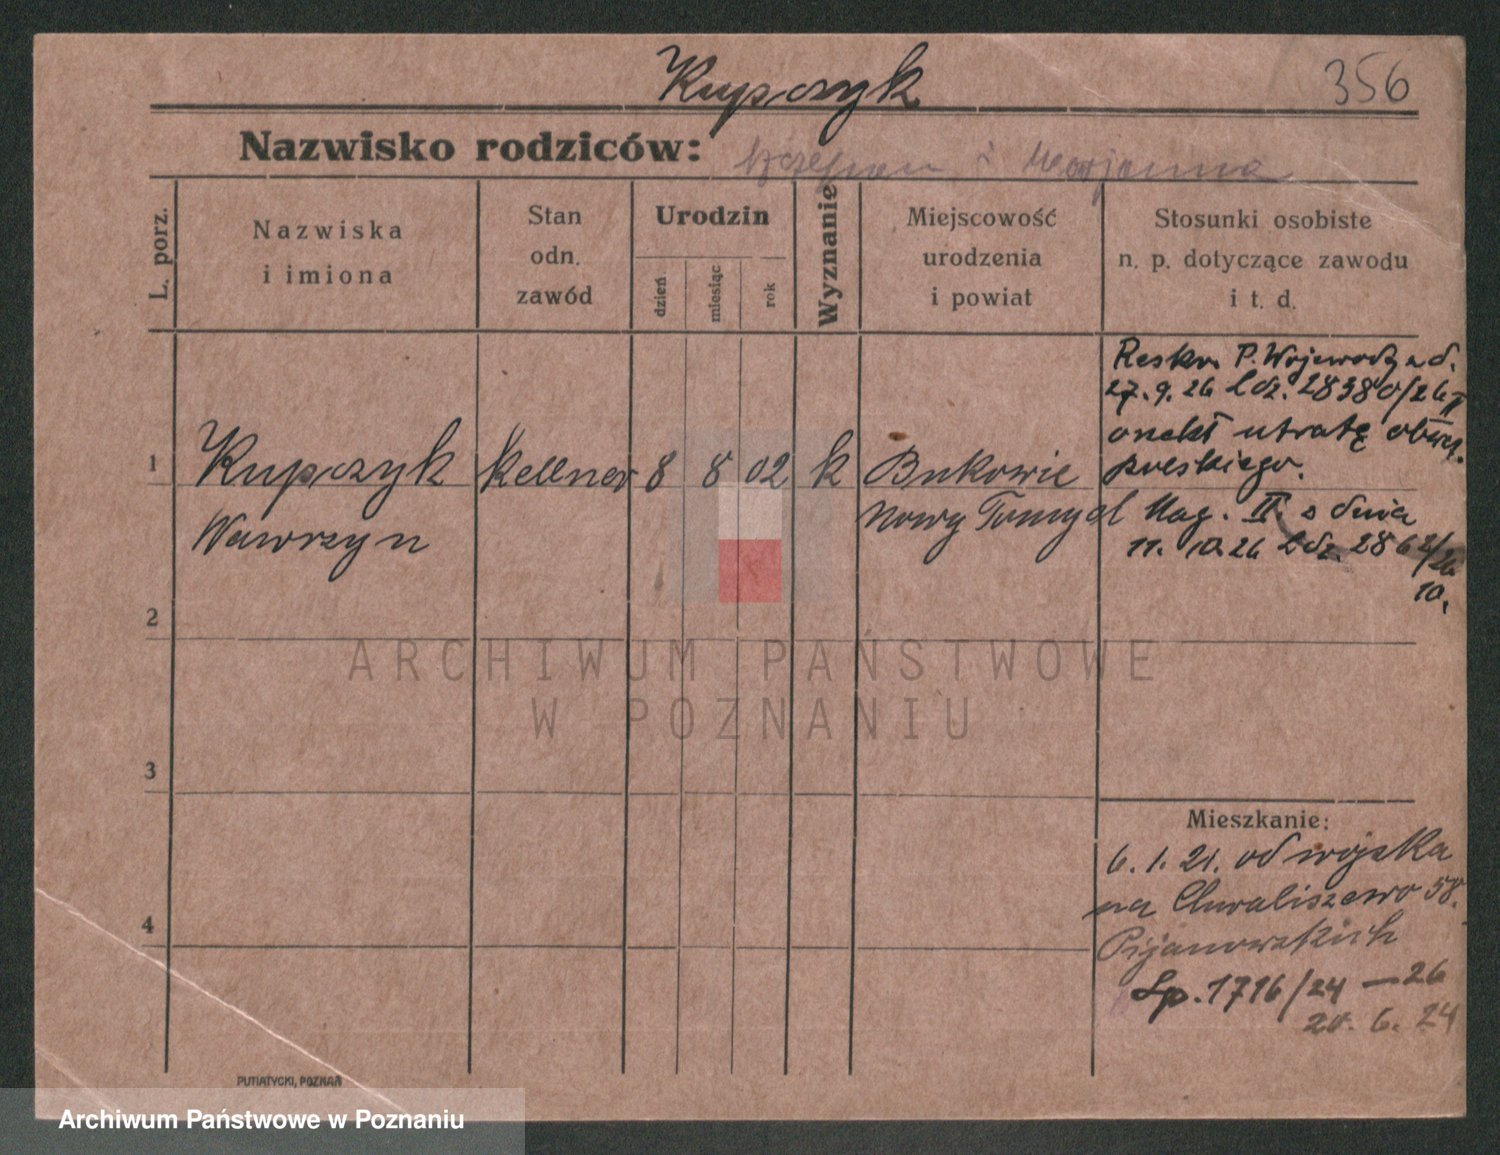 Kupczyk
356
Nazwisko rodziców: Szczepan i Marjanna
L. porz.
Nazwiska
i imiona
Stan
odn.
zawód
Urodzin
dzień
miesiąc
rok
Wyznanie
Miejscowość
urodzenia
i powiat
Stosunki osobiste
n. p. dotyczące zawodu
i t. d.
1
Kupczyk
Wawrzyn
Kellner
8
8
02
k
Bukowie
Nowy Tomysl
Reskr. P. Wojewody z d.
27. 9. 26 Ldz. 28380/26 II
orzekł utratę obyw.
polskiego.
Mag. II. z dnia
11. 10. 26 Ldz. 2862/26
10.
2
3
4
Mieszkanie:
6. 1. 21. od wojska
na Chwaliszewo 58.
Pijanowskich
Lp. 1716/24 — 26
20. 6. 24
PUTIATYCKI, POZNAŃ
ARCHIWUM PAŃSTWOWE
W POZNANIU
Archiwum Państwowe w Poznaniu